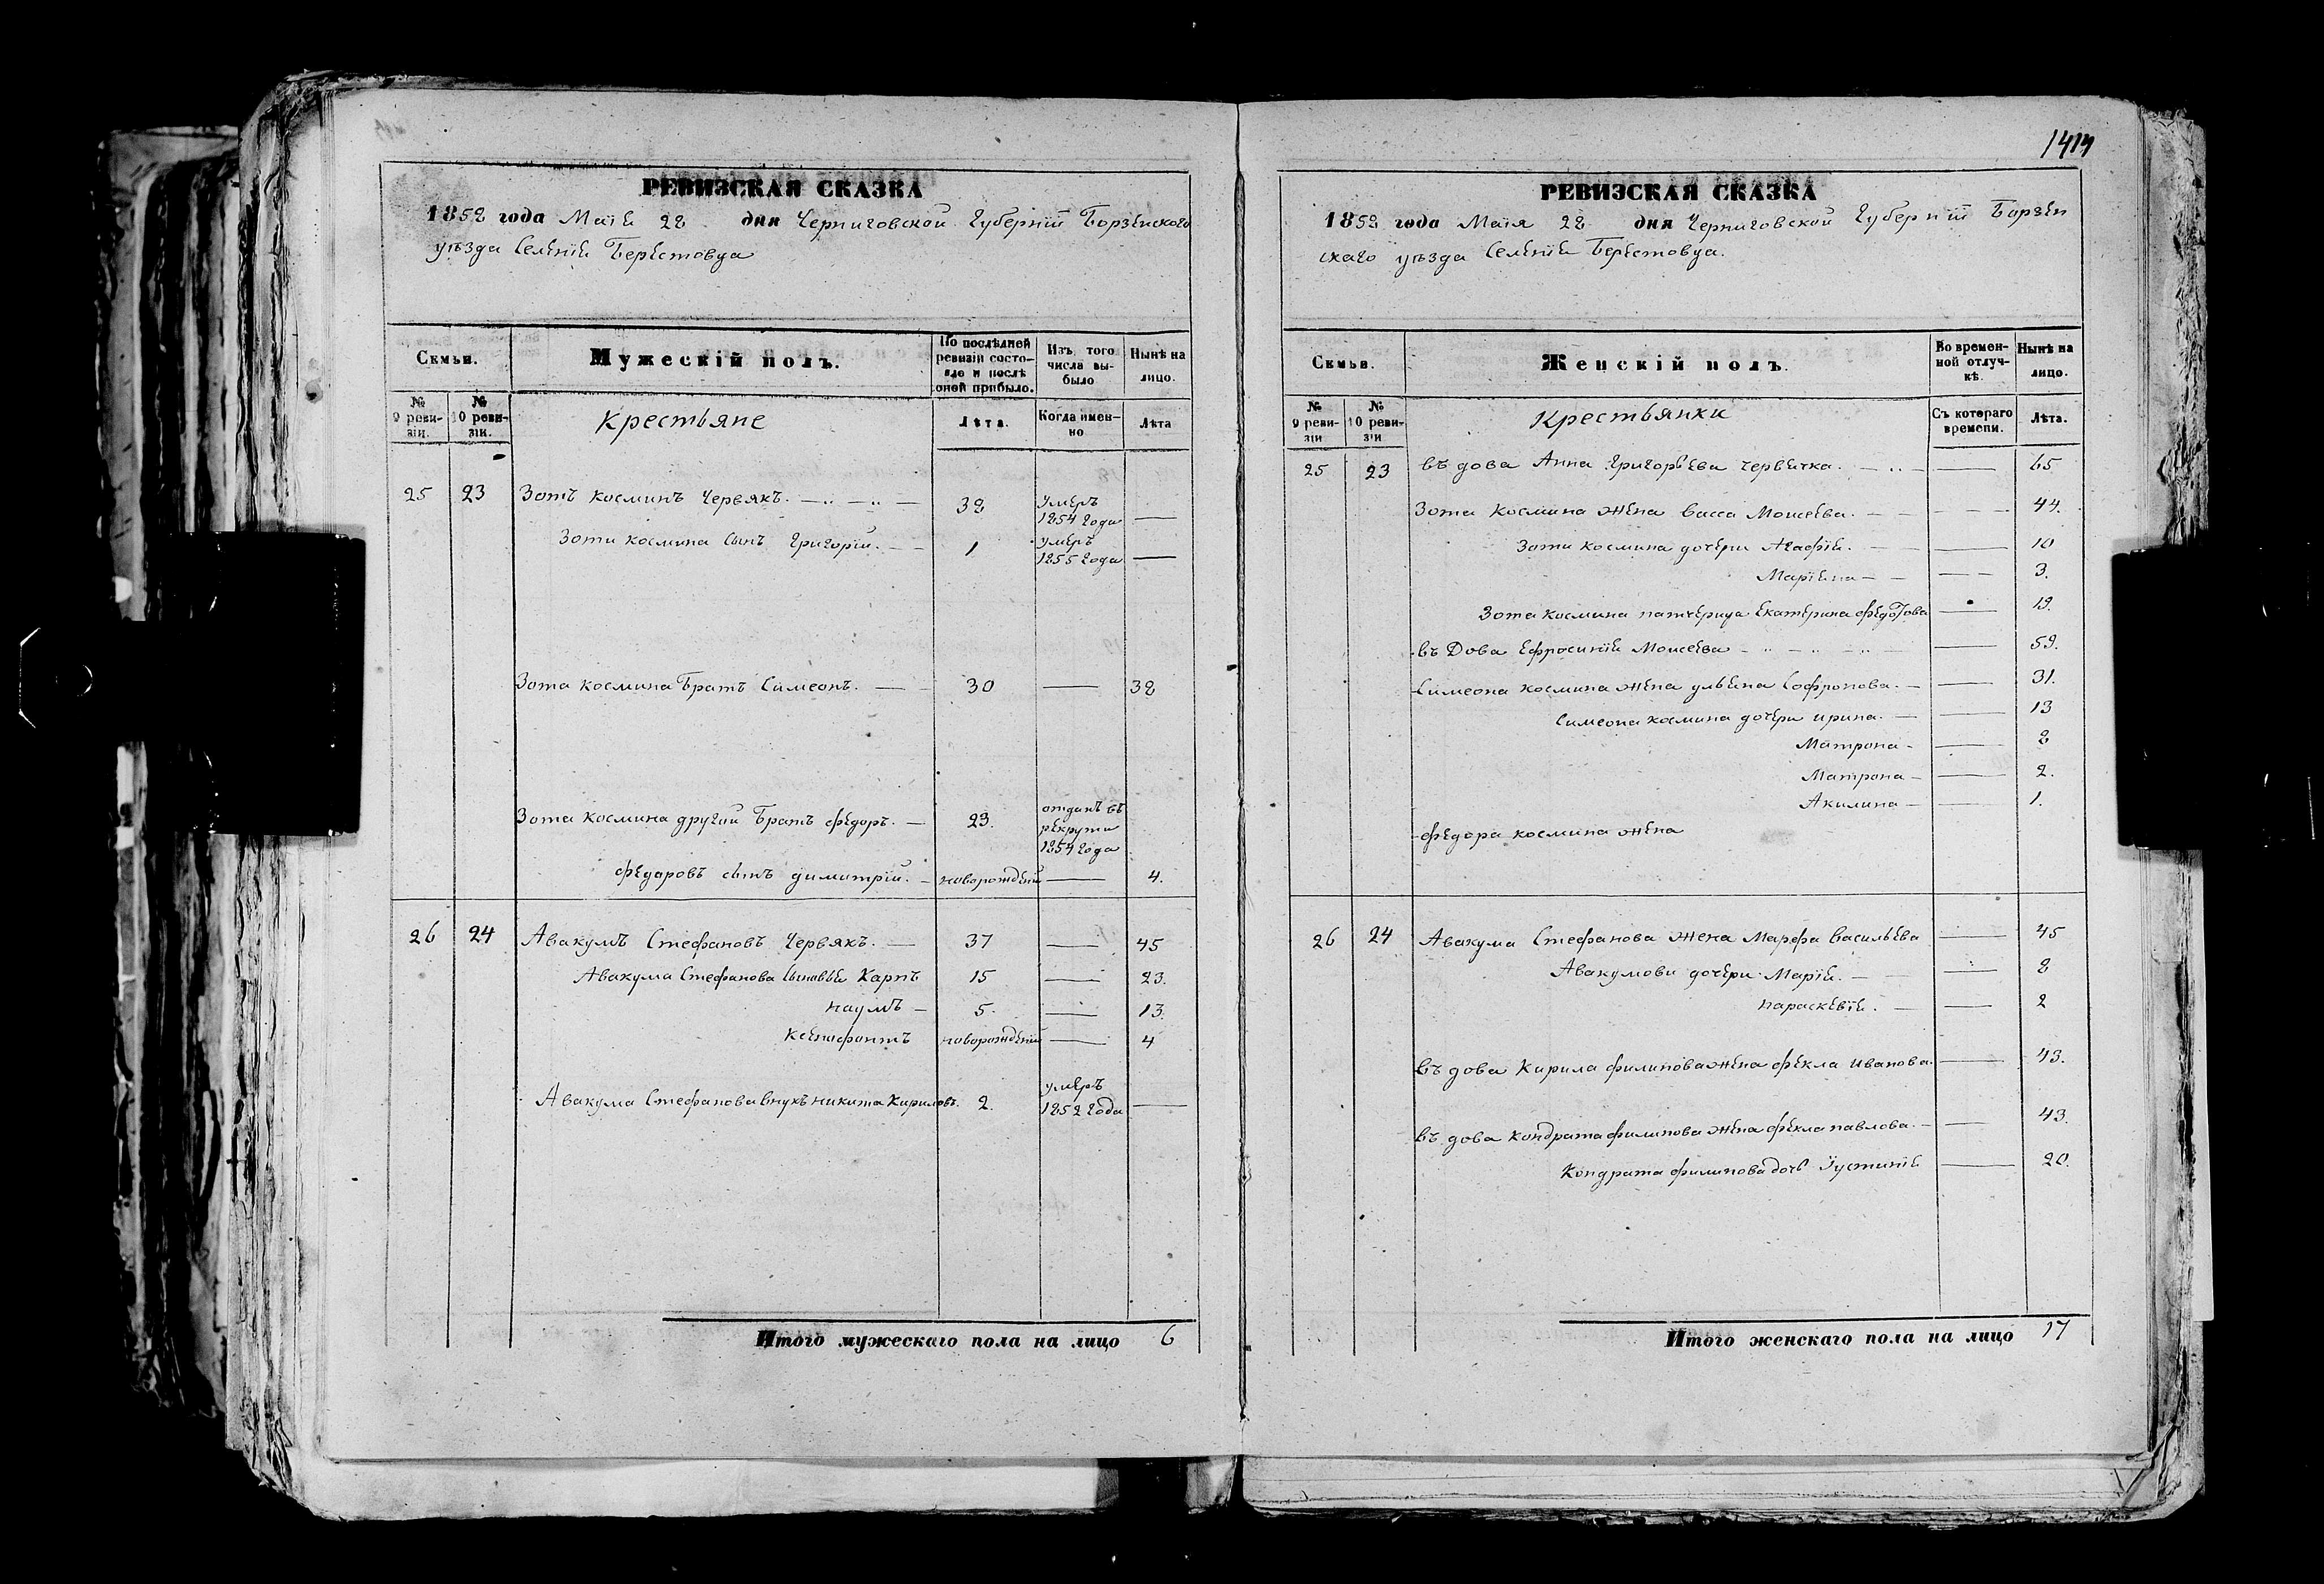 РЕВИЗСКАЯ СКАЗКА
1858 года Маія 28 дня Черниговской Губерніи Борзенского
уѣзда Селенія Берестовца
Семьи.
Мужескій полъ.
По послѣдней ревизіи состояло и послѣ оной прибыло.
Изъ того числа выбыло
Ныне на лицо.
№ 9 ревизіи.
№ 10 ревизіи.
Крестьяне
Лѣта.
Когда именно
Лѣта
25 23 Зотъ Косминъ Червякъ. 38 Умеръ 1854 года —
Зота Космина Сынъ Григорій. 1 умеръ 1855 года —
Зота Космина Братъ Симеонъ. 30 — 38
Зота Космина другой Братъ Федоръ. 23. отданъ въ рекруты 1854 года
Федоровъ сынъ димитрій. новорожденій — 4.
26 24 Авакумъ Стефановъ Червякъ. 37 — 45
Авакума Стефанова Сыновья Карпъ 15 — 23.
наумъ 5. — 13.
Ксенофонтъ новорожденій — 4
Авакума Стефанова внукъ никита Кириловъ. 2. умеръ 1852 года —
Итого мужескаго пола на лицо 6
РЕВИЗСКАЯ СКАЗКА
1858 года Маія 28 дня Черниговской Губерніи Борзен
скаго уѣзда Селенія Берестовца.
Семьи.
Женскій полъ.
Во временной отлучкѣ.
Нынѣ на лицо.
№ 9 ревизіи
№ 10 ревизіи
Крестьянки
Съ котораго времени.
Лѣта.
25 23 въдова Анна Григорьева Червячка. — 65
Зота Космина жена Васса Моисеева. — 44.
Зота Космина дочери Агафія. — 10
Маріяна — 3.
Зота Космина патчерица Екатерина Федотова — 19.
въДова Ефросинія Моисеева — 59.
Симеона Космина жена ульяна Софронова. — 31.
Симеона Космина дочери ирина. — 13
Матрона — 8
Матрона — 2.
Акилина — 1.
Федора Космина жена
26 24 Авакума Стефанова жена Марфа Васильева — 45
Авакумови дочери Марія. — 8
параскевія. — 2
въдова Кирила филипова жена фекла иванова. — 43.
въдова Кондрата филипова жена фекла павлова. — 43.
Кондрата филипова дочь Іустинія — 20.
Итого женскаго пола на лицо 17